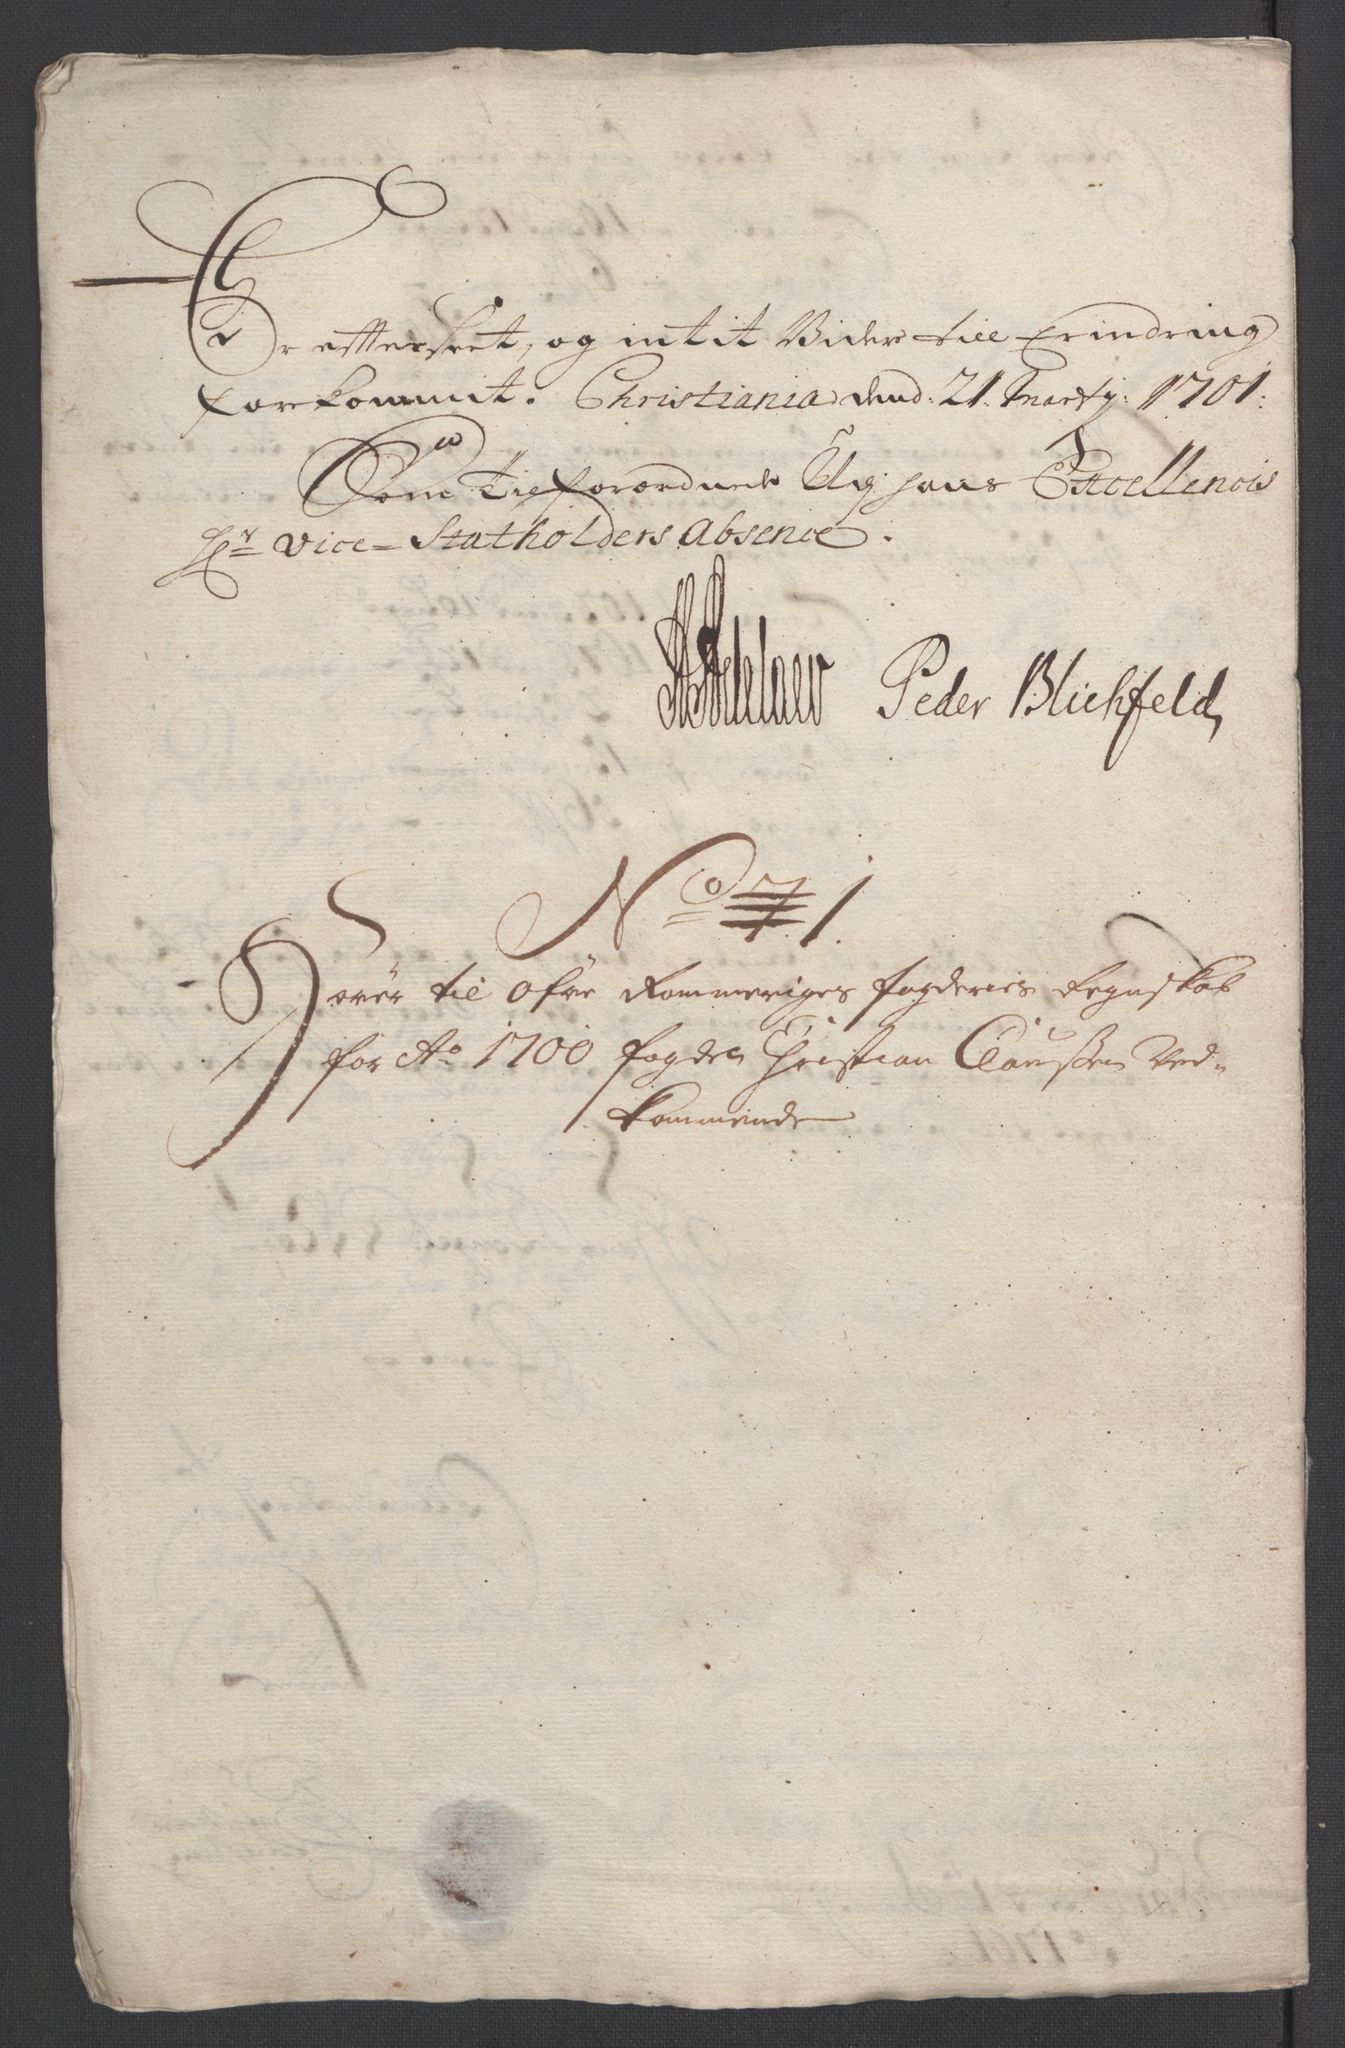 Er efterseet, og intit Vider till Erindring
forkommit. Christiania dend: 21. Martij: 1701:
Som tilforordnede Udj hans Excellences
Hr Vice-Statholders Absence.
Peder Blichfeld
No 7 1.
Hører til Øfre Rommeriges fogderies Regnskab
for Ao 1700 fogden Christian Claussen Ved-
kommende